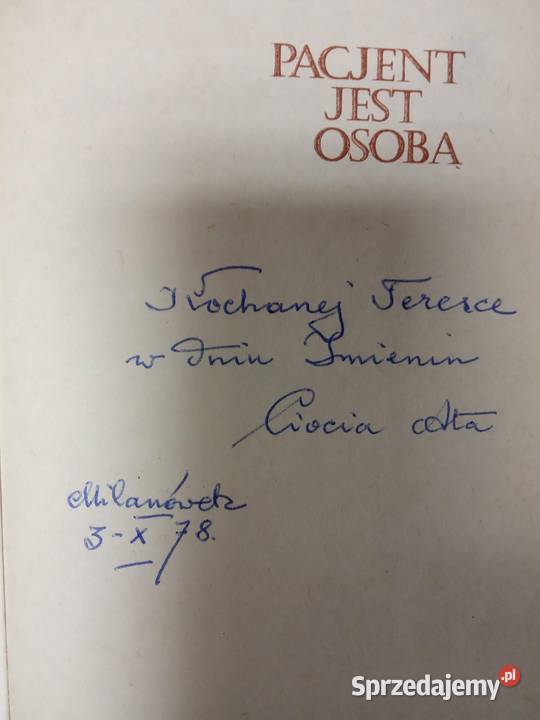 PACJENT
JEST
OSOBĄ
KochanejTeresce
w dniu Imienin
Ciocia Ata
Milanówek
3-X 78.
Sprzedajemy.pl